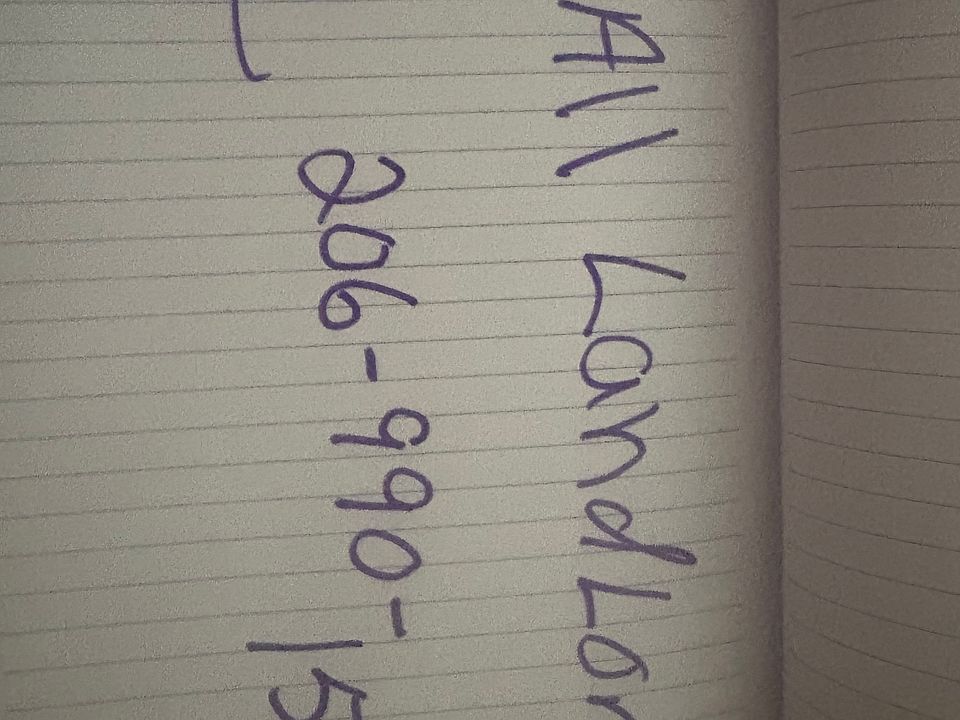 All LandLor
206-990-15